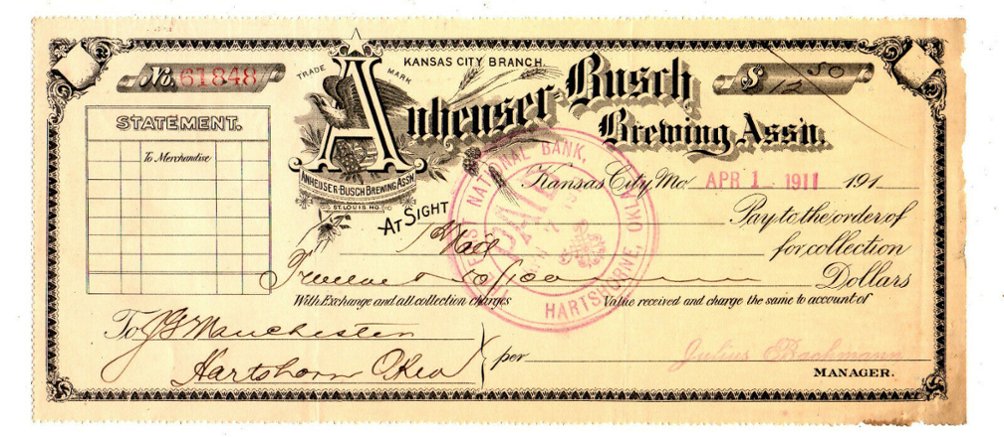 KANSAS CITY BRANCH.
TRADE MARK
No. 61848
Anheuser-Busch
Brewing Ass'n.
$ 12 50
STATEMENT.
To Merchandise
ANHEUSER-BUSCH BREWING ASS'N
ST. LOUIS MO.
Kansas City, Mo. APR 1 1911 191
AT SIGHT
Pay to the order of
for collection
50/100 Dollars
With Exchange and all collection charges Value received and charge the same to account of
NATIONAL BANK,
PAID
HARTSHORNE, OKLA
To J G Manchester
Hartshorn Okla
per Julius Bachmann
MANAGER.